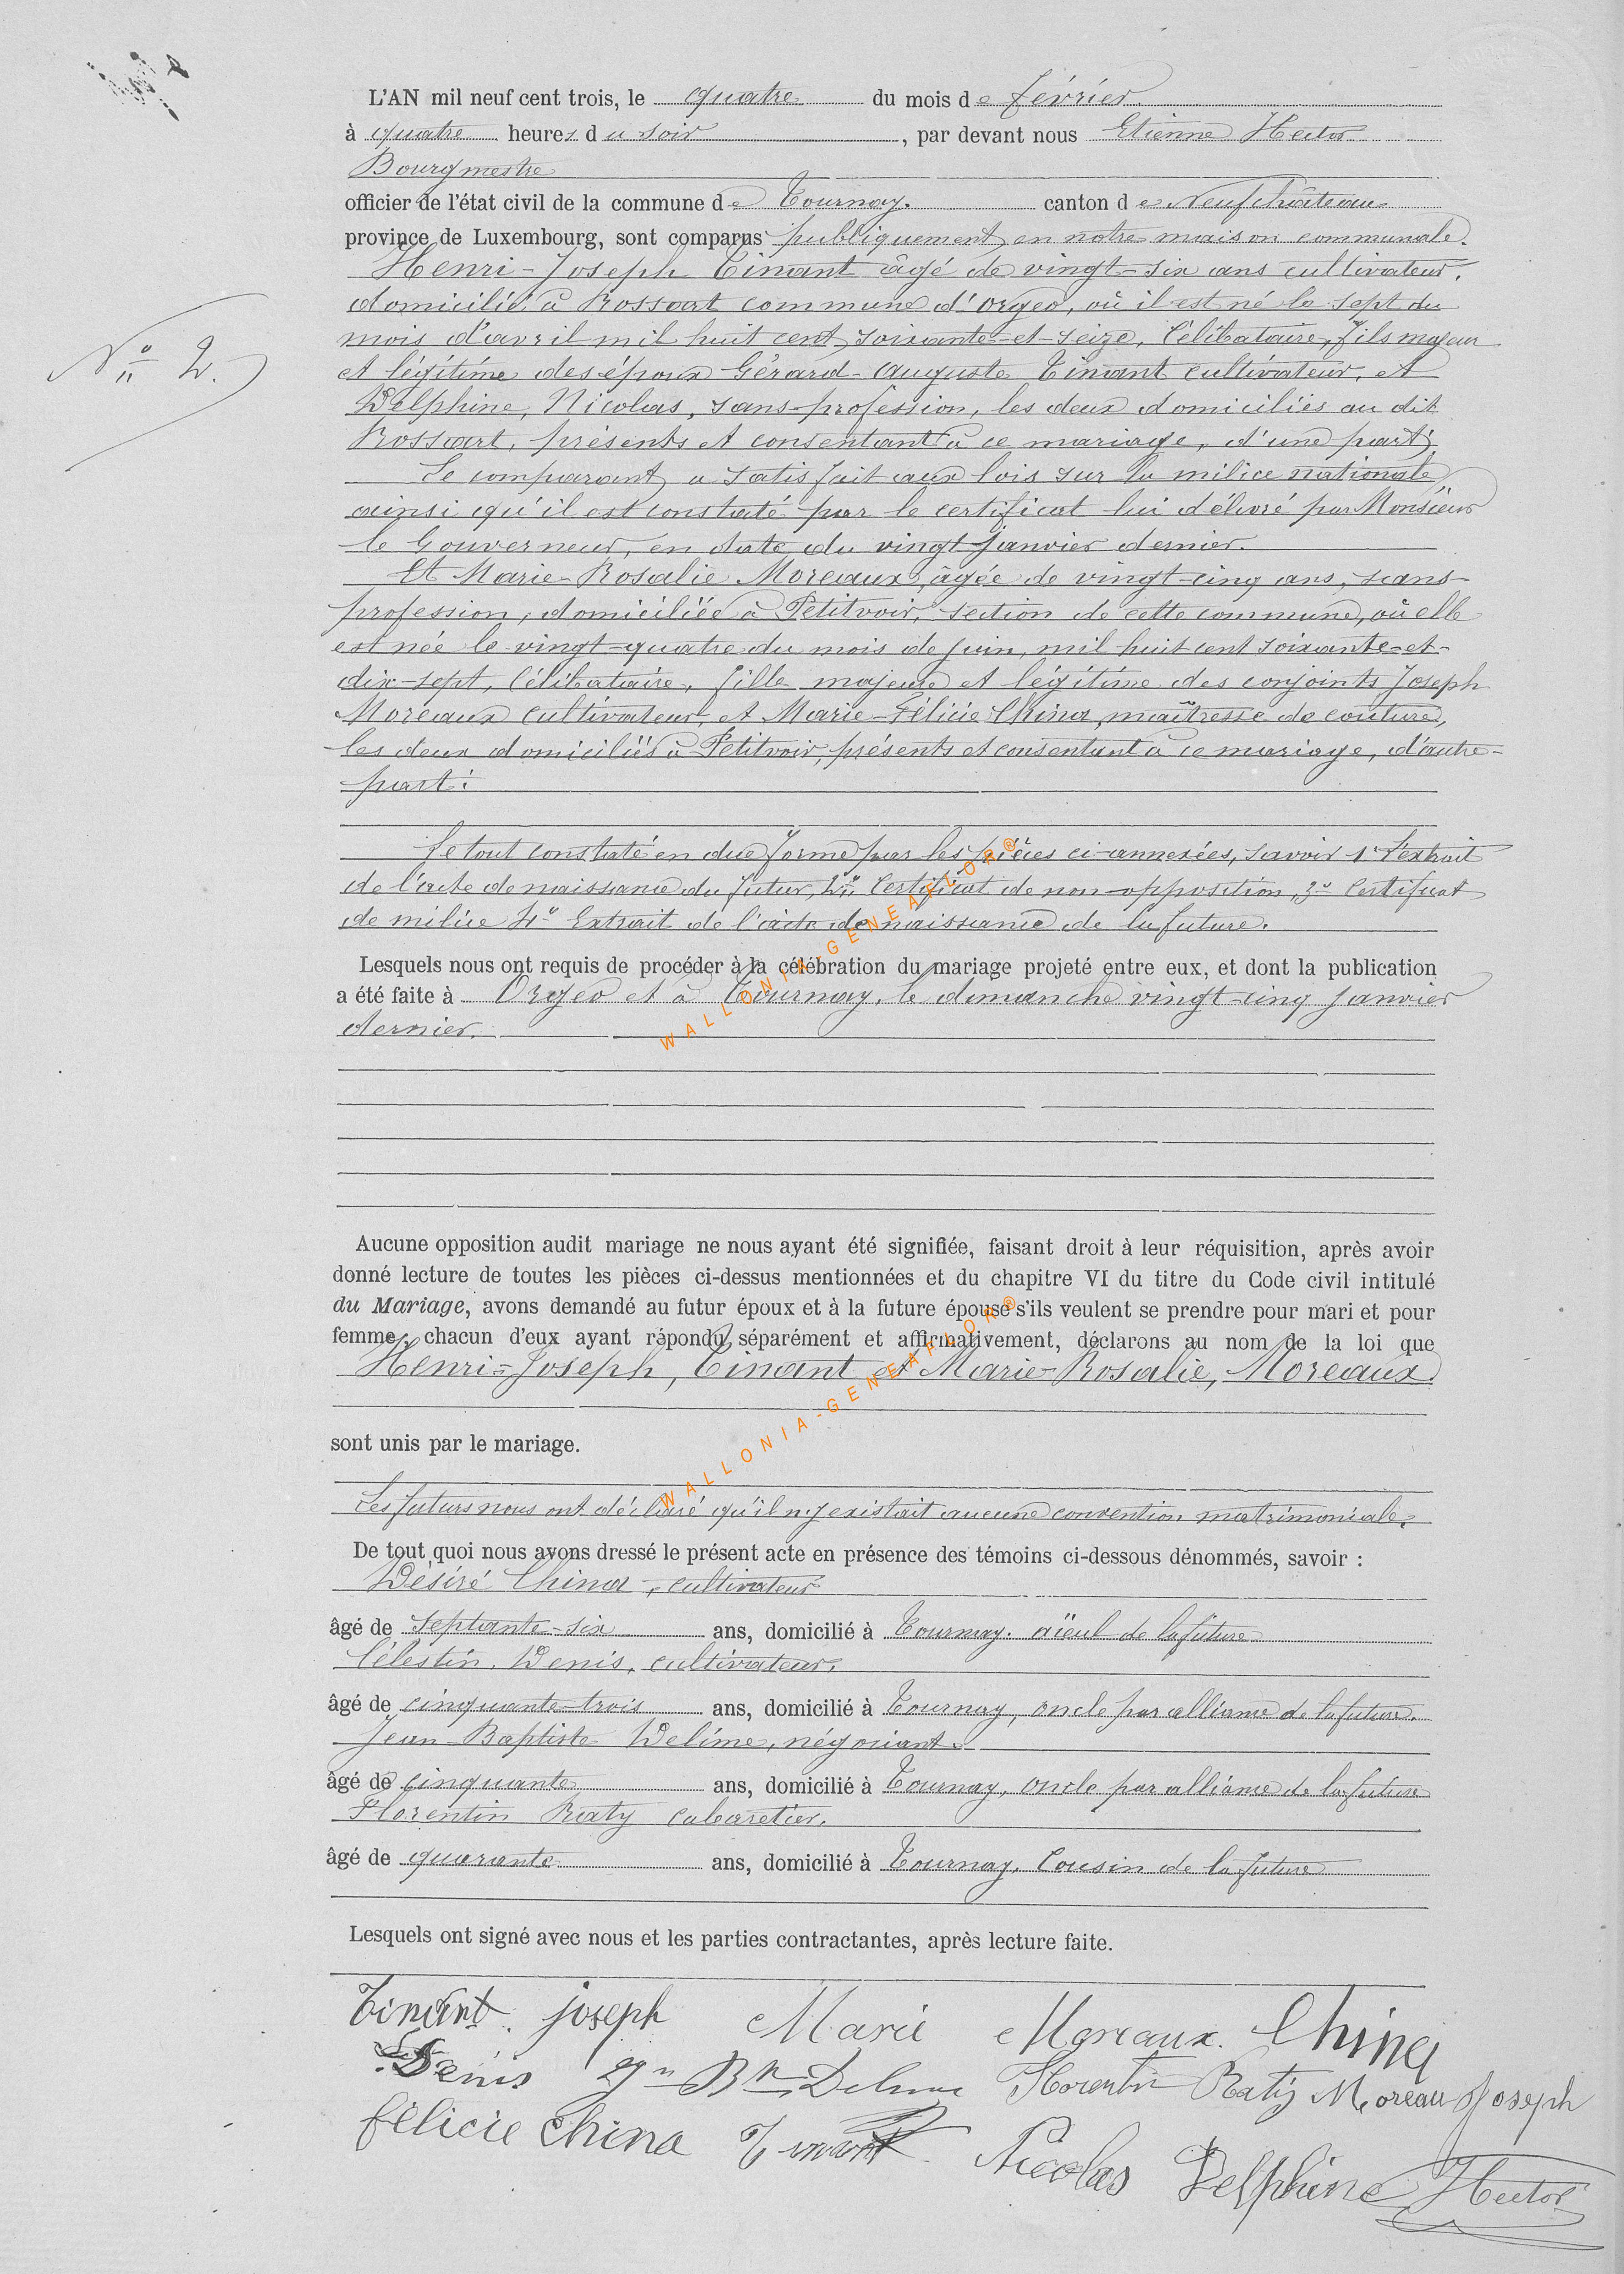 L'AN mil neuf cent trois, le quatre du mois de février
à quatre heures du soir, par devant nous Etienne Hector
Bourgmestre
officier de l'état civil de la commune de Tournay. canton de Neufchâteau
province de Luxembourg, sont comparus publiquement en notre maison communale.
Henri-Joseph Tinant âgé de vingt-six ans cultivateur,
domicilié à Rossart commune d'Orgeo, où il est né le sept du
mois d'avril mil huit cent soixante-et-seize, Célibataire, fils majeur
et légitime des époux Gérard-Auguste Tinant cultivateur, et
Delphine, Nicolas, sans-profession, les deux domiciliés au dit
Rossart, présents et consentant à ce mariage, d'une part;
Le comparant a satisfait aux lois sur la milice nationale
ainsi qu'il est constaté par le certificat lui délivré par Monsieur
le Gouverneur, en date du vingt janvier dernier.
Et Marie-Rosalie Moreaux, âgée de vingt-cinq ans, sans-
profession, domiciliée à Petitvoir, section de cette commune, où elle
est née le vingt-quatre du mois de juin, mil huit cent soixante-et-
dix-sept, Célibataire, fille majeure et légitime des conjoints Joseph
Moreaux cultivateur, et Marie-Félicie China, maîtresse de couture,
les deux domiciliés à Petitvoir, présents et consentant à ce mariage, d'autre-
part:
Nº 2.
Le tout constaté en due forme par les pièces ci-annexées, savoir 1º L'extrait
de l'acte de naissance du futur, 2º Certificat de non-opposition, 3º Certificat
de milice 4º Extrait de l'acte de naissance de la future.
Lesquels nous ont requis de procéder à la célébration du mariage projeté entre eux, et dont la publication
a été faite à Orgeo et à Tournay, le dimanche vingt-cinq janvier
dernier.
WALLONIA-GENEAFLOR®
Aucune opposition audit mariage ne nous ayant été signifiée, faisant droit à leur réquisition, après avoir
donné lecture de toutes les pièces ci-dessus mentionnées et du chapitre VI du titre du Code civil intitulé
du Mariage, avons demandé au futur époux et à la future épouse s'ils veulent se prendre pour mari et pour
femme, chacun d'eux ayant répondu séparément et affirmativement, déclarons au nom de la loi que
Henri-Joseph, Tinant et Marie-Rosalie, Moreaux
sont unis par le mariage.
WALLONIA-GENEAFLOR®
Les futurs nous ont déclaré qu'il n'y existait aucune convention matrimoniale.
De tout quoi nous avons dressé le présent acte en présence des témoins ci-dessous dénommés, savoir :
Désiré China, cultivateur
âgé de septante-six ans, domicilié à Tournay. aïeul de la future
Célestin, Denis, cultivateur,
âgé de cinquante-trois ans, domicilié à Tournay, oncle par alliance de la future.
Jean-Baptiste Delime, négociant.
âgé de cinquante ans, domicilié à Tournay, oncle par alliance de la future
Florentin Raty cabaretier.
âgé de quarante ans, domicilié à Tournay, Cousin de la future
Lesquels ont signé avec nous et les parties contractantes, après lecture faite.
Tinant joseph Marie Moreaux. China
Denis Jn Bte Delime Florentin Raty Moreau Joseph
félicie China Tinant Nicolas Delphine Hector